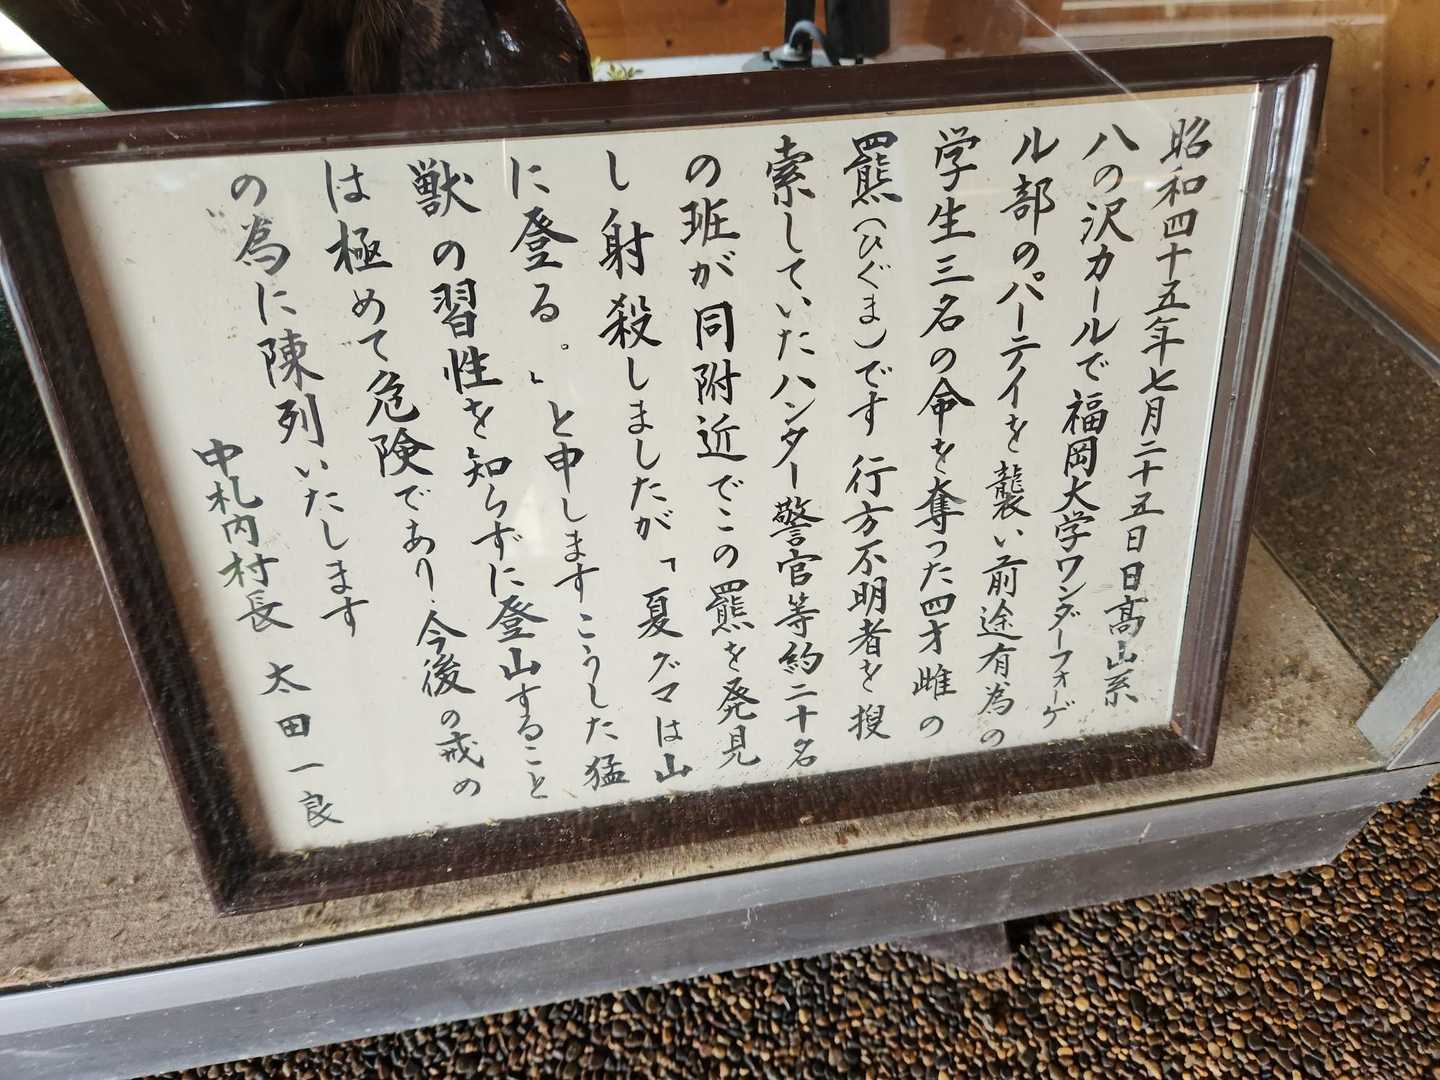 昭和四十五年七月二十五日日高山系
八の沢カールで福岡大学ワンダーフォーゲ
ル部のパーテイを襲い前途有為の
学生三名の命を奪った四才雌の
羆(ひぐま)です行方不明者を捜
索していたハンター警官等約二十名
の班が同附近でこの羆を発見
し射殺しましたが「夏グマは山
に登る。」と申しますこうした猛
獣の習性を知らずに登山すること
は極めて危険であり今後の戒め
の為に陳列いたします
中札内村長 太田一良